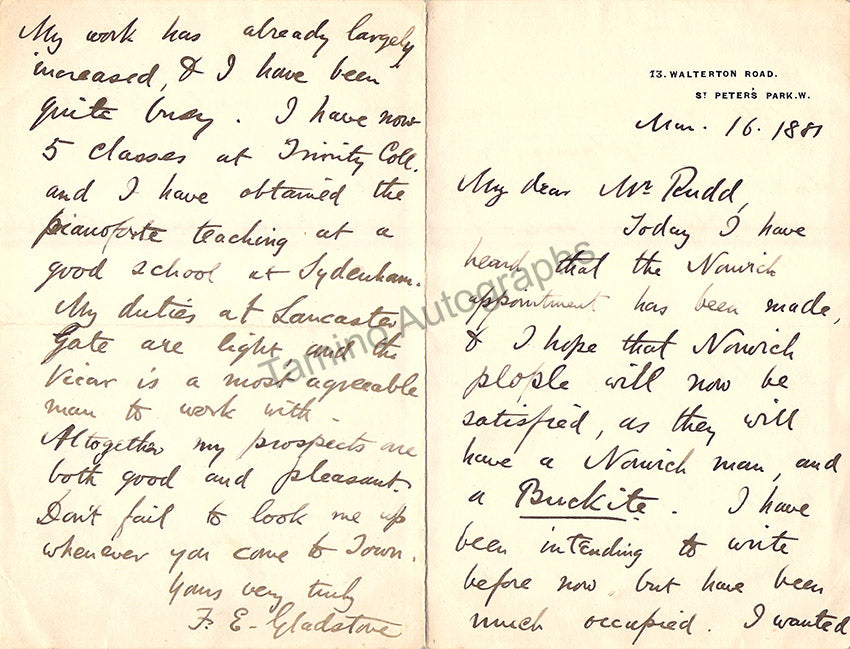 13. WALTERTON ROAD.
ST PETER'S PARK. W.
Mar. 16. 1881
My dear Mr Rudd,
Today I have
heard that the Norwich
appointment has been made,
& I hope that Norwich
people will now be
satisfied, as they will
have a Norwich man, and
a Buckite. I have
been intending to write
before now but have been
much occupied. I wanted
My work has already largely
increased, & I have been
quite busy. I have now
5 classes at Trinity Coll.
and I have obtained the
pianoforte teaching at a
good school at Sydenham.
My duties at Lancaster
Gate are light and the
Vicar is a most agreeable
man to work with.
Altogether my prospects are
both good and pleasant.
Don't fail to look me up
whenever you come to Town.
Yours very truly
F. E. Gladstone
Tamino Autographs